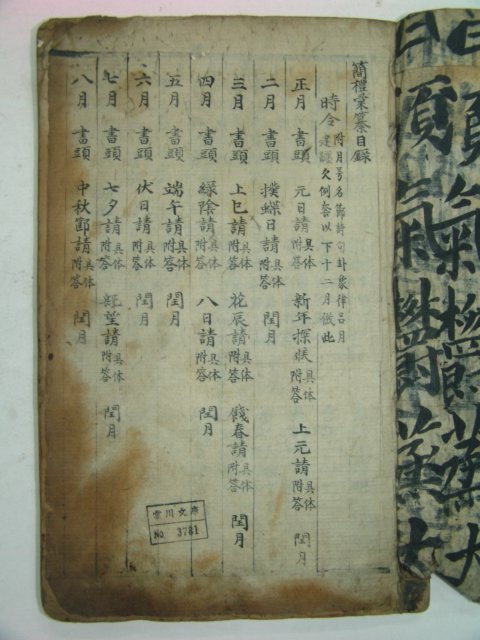 簡禮彙纂目錄
時令 附月另名節詩句卦象律呂月建謎久例套以下十二月倣此
正月 書頭 元日請具体附答 新年探候具体附答 上元請具体附答 閏月
二月 書頭 撲蝶日請具体附答 閏月
三月 書頭 上巳請具体附答 花辰請具体附答 餞春請具体附答 閏月
四月 書頭 綠陰請具体附答 八日請具体附答 閏月
五月 書頭 端午請具体附答 閏月
六月 書頭 伏日請具体附答 閏月
七月 書頭 七夕請具体附答 旣望請具体附答 閏月
八月 書頭 中秋節請具体附答 閏月
雲川文庫
No. 3781